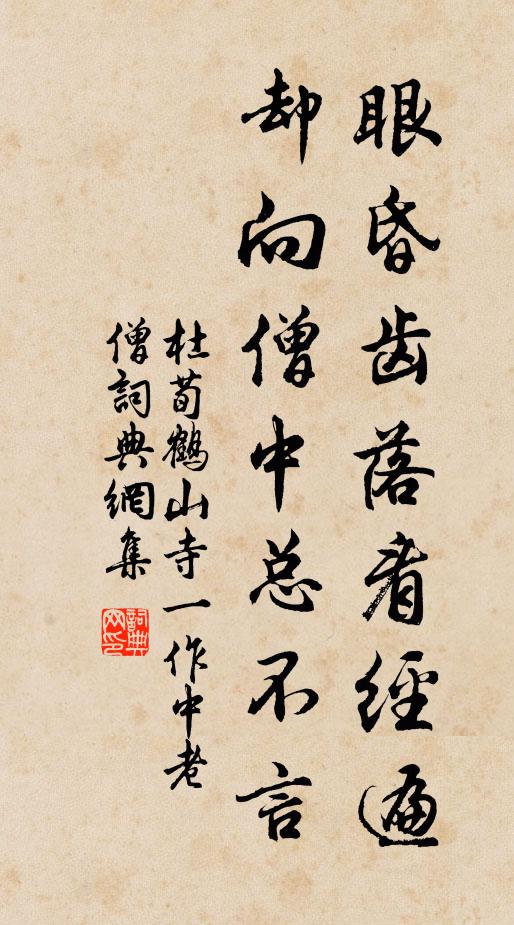 眼昏齿落看經遍
却向僧中总不言
杜荀鶴山寺一作中老
僧詞典網集
詞典
网印